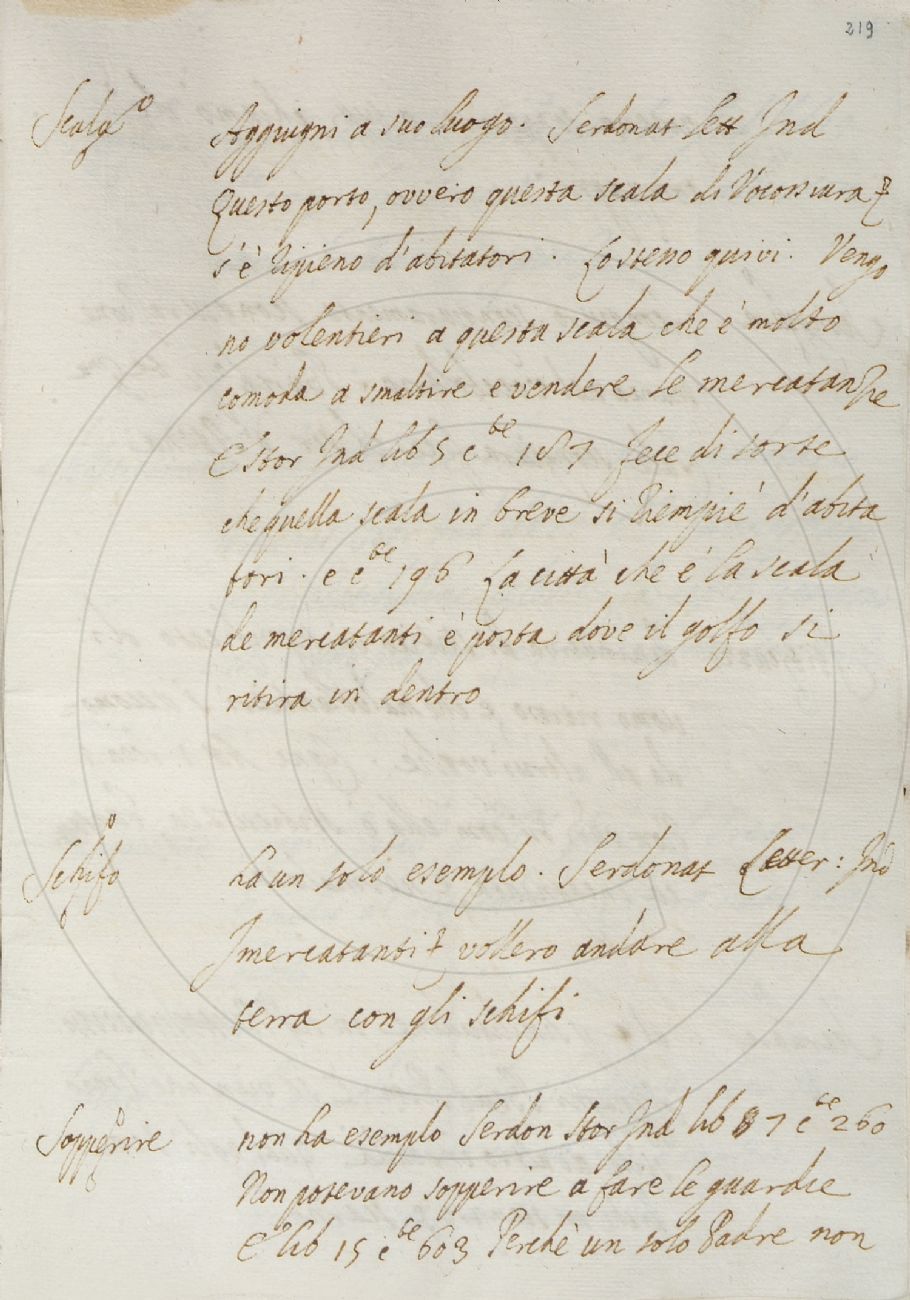 219
Scala
Aggiugni a suo luogo. Serdonat lett Ind
Questo porto, ovvero questa scala di Vocossiura
s'è ripieno d'abitatori. Lo stesso quivi. Vengo
no volentieri a questa scala che è molto
comoda a smaltire e vendere le mercatanzie
E stor Ind lib 5 c.te 187 Fece di sorte
che quella scala in breve si riempiè d'abita
tori. e c.te 196 La città che è la scala
de mercatanti è posta dove il golfo si
ritira in dentro
Schifo
ha un solo esemplo. Serdonat Letter: Ind
I mercatanti vollero andare alla
terra con gli schifi
Sopperire
non ha esemplo Serdon stor Ind lib 7 c.te 260
Non potevano sopperire a fare le guardie
E lib 15 c.te 603 Perchè un solo Padre non